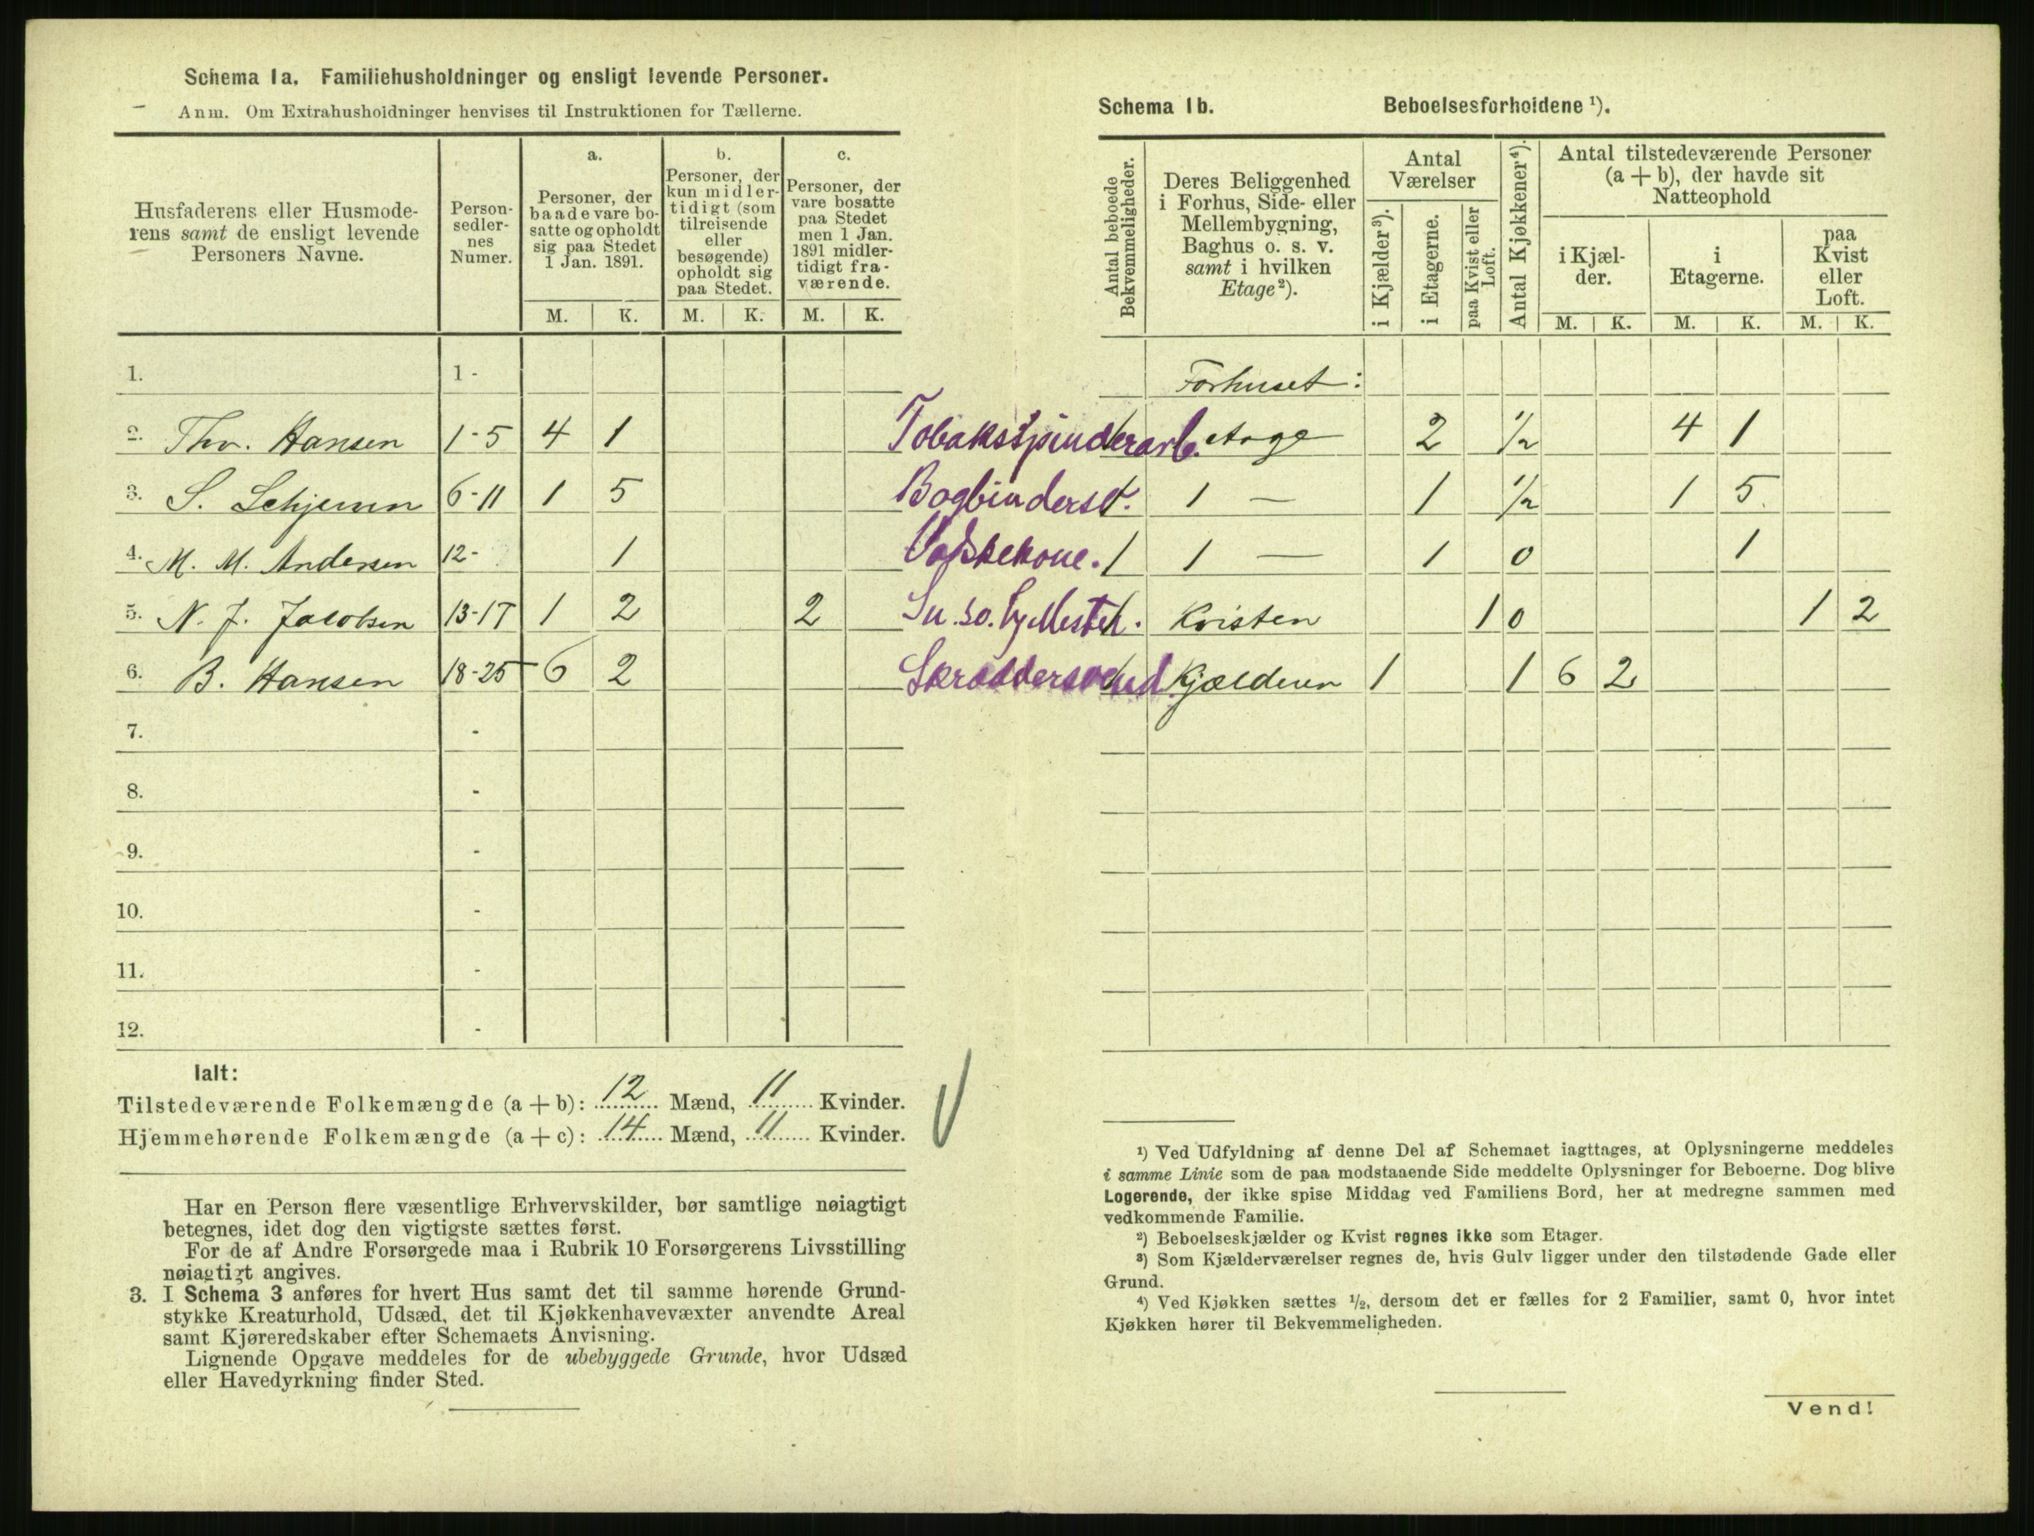 Schema 1a. Familiehusholdninger og ensligt levende Personer.
Anm. Om Extrahusholdninger henvises til Instruktionen for Tællerne.
Husfaderens eller Husmode-
rens samt de ensligt levende
Personers Navne.
Person-
sedler-
nes
Numer.
a.
Personer, der
baade vare bo-
satte og opholdt
sig paa Stedet
1 Jan. 1891.
b.
Personer, der
kun midler-
tidigt (som
tilreisende
eller
besøgende)
opholdt sig
paa Stedet.
c.
Personer, der
vare bosatte
paa Stedet
men 1 Jan.
1891 midler-
tidigt fra-
værende.
M. K. M. K. M. K.
1. 1 -
2. Thv. Hansen 1-5 4 1
3. S. Schjenn 6-11 1 5
4. M. M. Andersen 12- 1
5. N. J. Jacobsen 13-17 1 2 2
6. B. Hansen 18-25 6 2
7. -
8. -
9. -
10. -
11. -
12. -
Ialt:
Tilstedeværende Folkemængde (a + b): 12 Mænd, 11 Kvinder.
Hjemmehørende Folkemængde (a + c): 14 Mænd, 11 Kvinder.
Har en Person flere væsentlige Erhvervskilder, bør samtlige nøiagtigt
betegnes, idet dog den vigtigste sættes først.
For de af Andre Forsørgede maa i Rubrik 10 Forsørgerens Livsstilling
nøiagtigt angives.
3. I Schema 3 anføres for hvert Hus samt det til samme hørende Grund-
stykke Kreaturhold, Udsæd, det til Kjøkkenhavevæxter anvendte Areal
samt Kjøreredskaber efter Schemaets Anvisning.
Lignende Opgave meddeles for de ubebyggede Grunde, hvor Udsæd
eller Havedyrkning finder Sted.
Schema 1b. Beboelsesforholdene ¹).
Antal beboede
Bekvemmeligheder.
Deres Beliggenhed
i Forhus, Side- eller
Mellembygning,
Baghus o. s. v.
samt i hvilken
Etage²).
Antal
Værelser
i Kjælder³).
i Etagerne.
paa Kvist eller
Loft.
Antal Kjøkkener⁴).
Antal tilstedeværende Personer
(a + b), der havde sit
Natteophold
i Kjæl-
der.
i
Etagerne.
paa
Kvist
eller
Loft.
M. K. M. K. M. K.
Forhuset:
Tobaksspinderarb. etage 2 ½ 4 1
Bogbindersv. 1 — 1 ½ 1 5
Vaskekone. 1 1 — 1 0 1
Kvisten 1 0 1 2
Skræddersvend Kjælderen 1 1 6 2
¹) Ved Udfyldning af denne Del af Schemaet iagttages, at Oplysningerne meddeles
i samme Linie som de paa modstaaende Side meddelte Oplysninger for Beboerne. Dog blive
Logerende, der ikke spise Middag ved Familiens Bord, her at medregne sammen med
vedkommende Familie.
²) Beboelseskjælder og Kvist regnes ikke som Etager.
³) Som Kjælderværelser regnes de, hvis Gulv ligger under den tilstødende Gade eller
Grund.
⁴) Ved Kjøkken sættes ½, dersom det er fælles for 2 Familier, samt 0, hvor intet
Kjøkken hører til Bekvemmeligheden.
Vend!